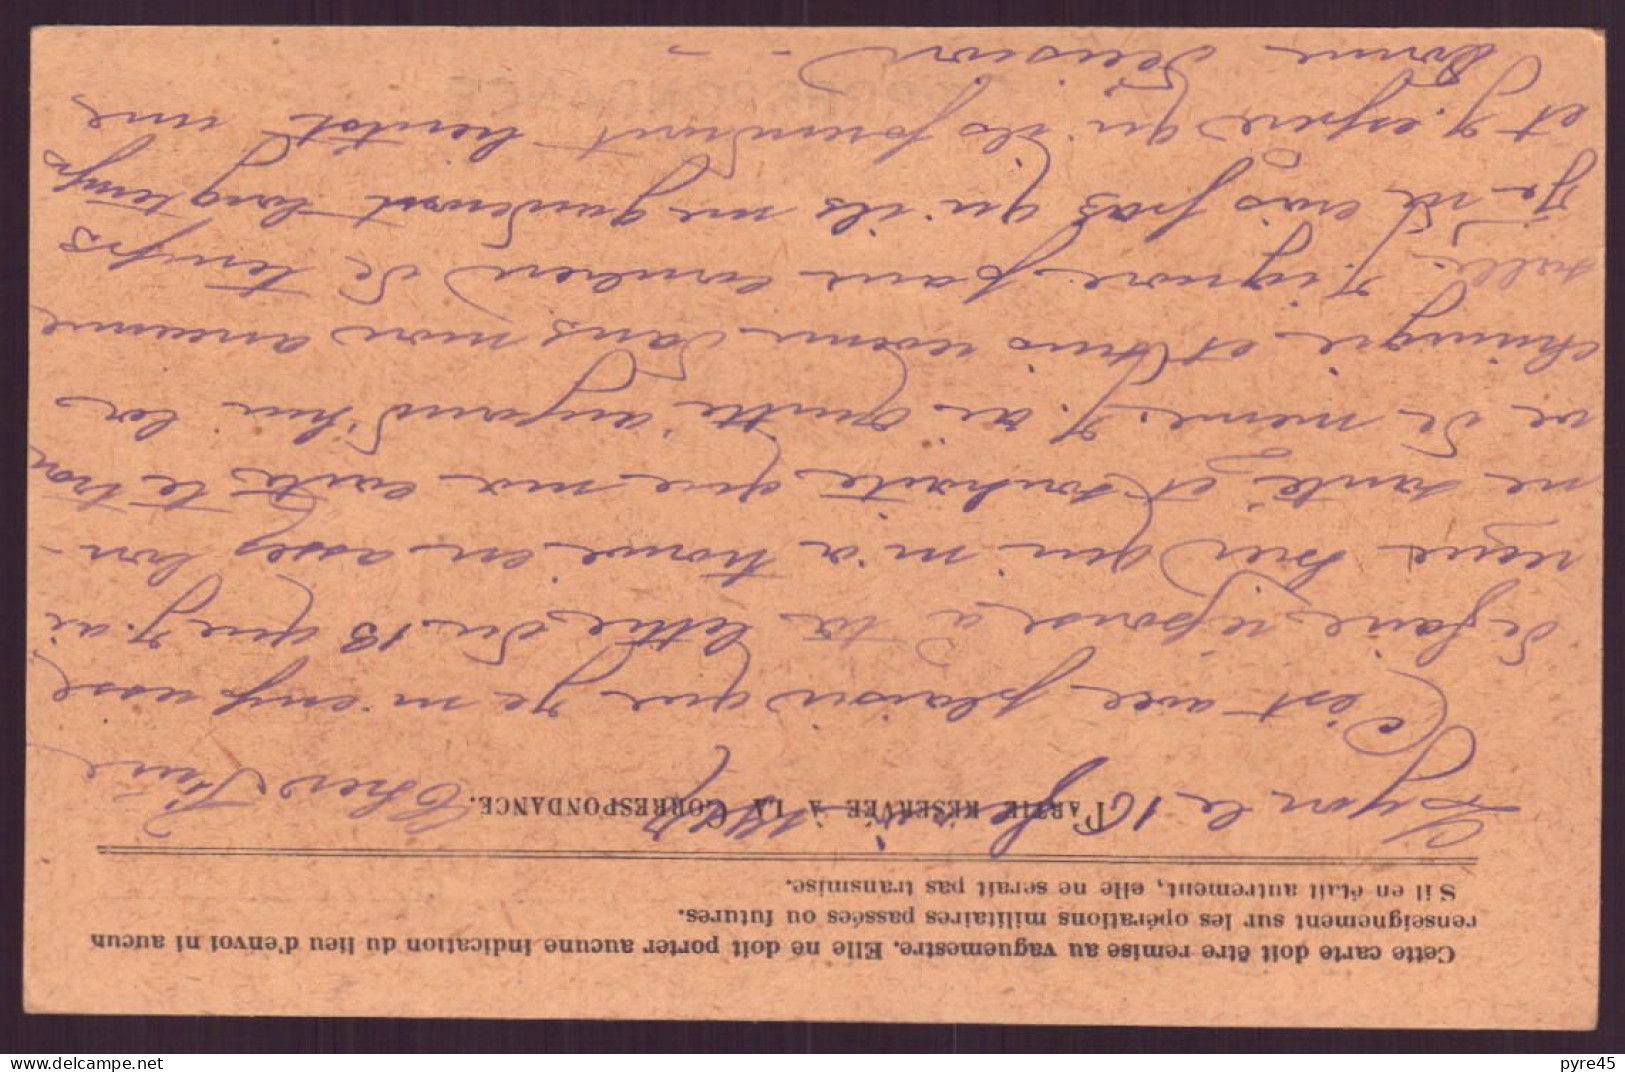 Cette carte doit être remise au vaguemestre. Elle ne doit porter aucune indication du lieu d'envoi ni aucun
renseignement sur les opérations militaires passées ou futures.
S'il en était autrement, elle ne serait pas transmise.
PARTIE RÉSERVÉE À LA CORRESPONDANCE.
Lyon le 16 1917 Cher
C'est avec plaisir que je m'empresse
de faire réponse à ta lettre du 13 que j'ai
reçue hier qui m'a trouvé en assez bon-
ne santé et souhaite que ma carte te trou
ve de même. J'ai quitté aujourd'hui la
chirurgie et suis revenu dans mon ancienne
salle. J'ignore pour combien de temps
Je ne crois pas qu'ils me garderont longtemps
et j'espère qu'ils prendront bientôt une
bonne décision. -
pyre45